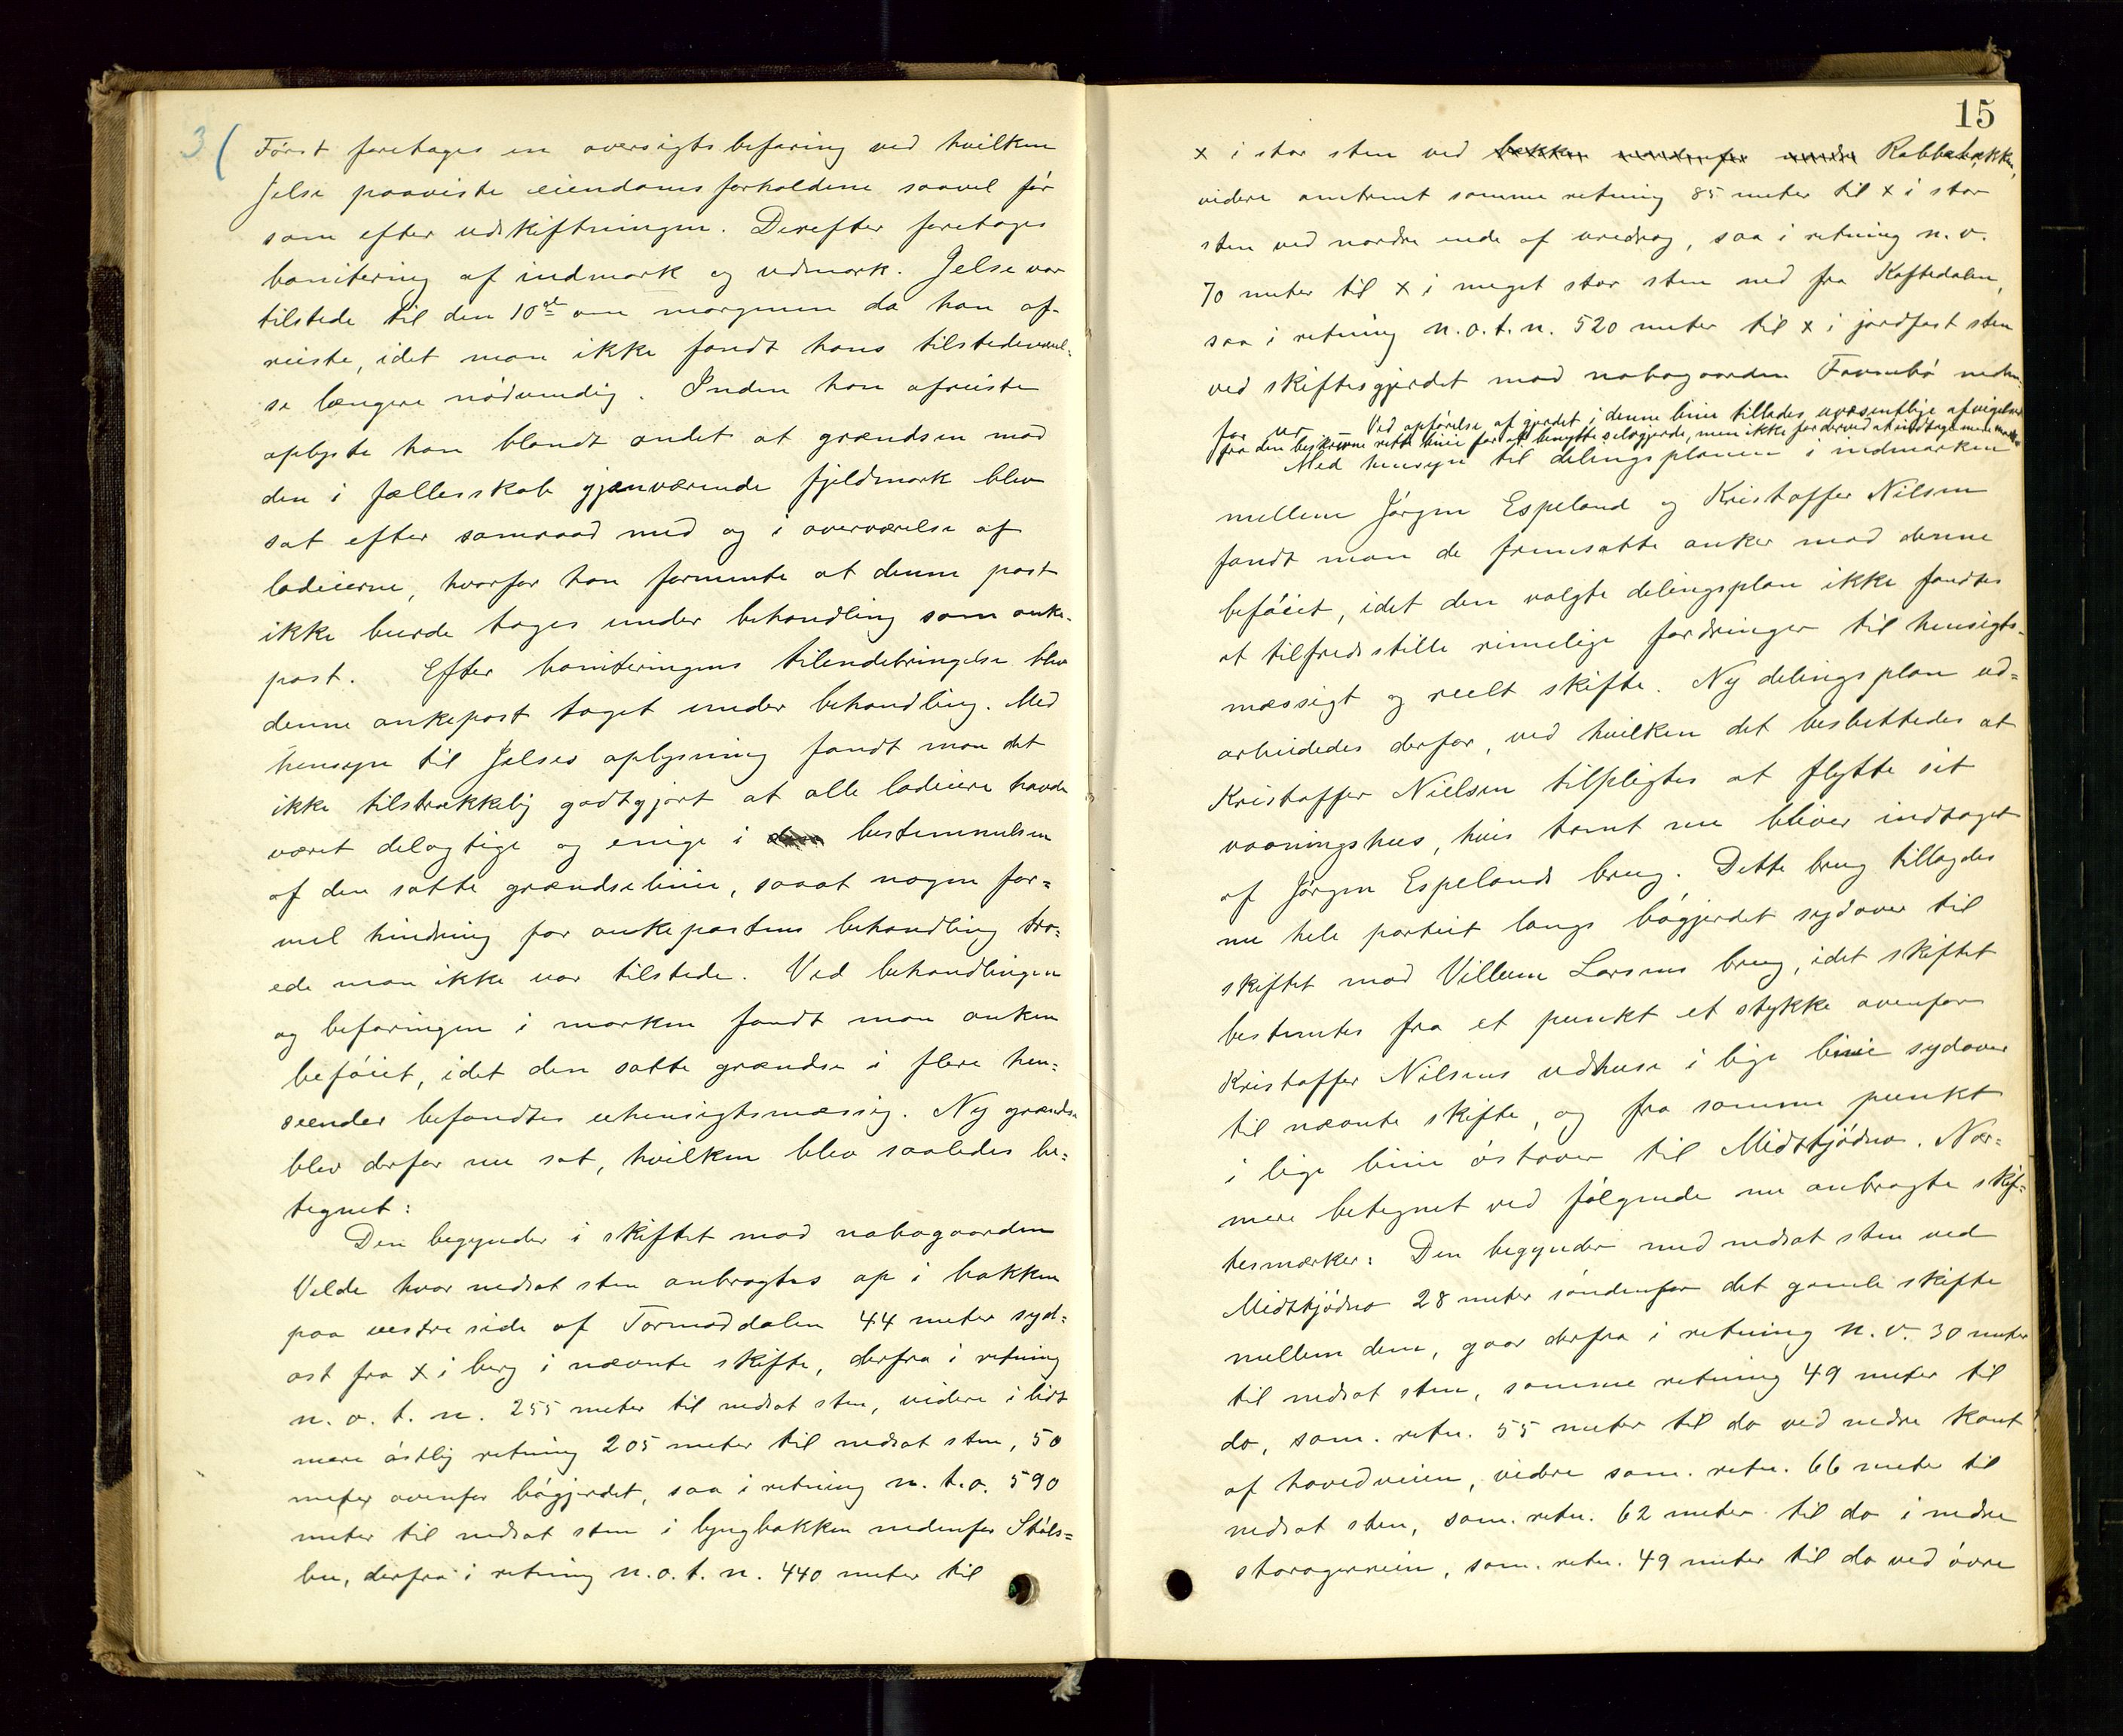 3 (
Först foretages en oversigtsbefaring ved hvilken
Jelse paaviste eiendomsforholdene saavel før
som efter udskiftningen. Derefter foretages
bonitering af indmark og udmark. Jelse var
tilstede til den 10de om morgenen da han af-
reiste, idet man ikke fandt hans tilstedeværel-
se længere nødvendig. Inden han afreiste
oplyste han blandt andet at grændsen mod
den i fællesskab gjenværende fjeldmark blev
sat efter samraad med og i overværelse af
lodeierne, hvorfor han formente at denne post
ikke burde tages under behandling som anke-
post. Efter boniteringens tilendebringelse blev
denne ankepost taget under behandling. Med
hensyn til Jelses oplysning fandt man det
ikke tilstrækkelig godtgjort at alle lodeiere havde
været delagtige og enige i bestemmelsen
af den satte grændselinie, saaat nogen for=
mel hindring for ankepostens behandling tro=
ede man ikke var tilstede. Ved behandlingen
og befaringen i marken fandt man anken
beføiet, idet den satte grændse i flere hen=
seender befandtes uhensigtsmæssig. Ny grændse
blev derfor nu sat, hvilken blev saaledes be=
tegnet:
Den begynder i skiftet mod nabogaarden
Velde hvor nedsat sten anbragtes op i bakken
paa vestre side af Tormoddalen 44 meter syd=
ost fra x i berg i nævnte skifte, derfra i retning
n. o. t. n. 255 meter til nedsat sten, videre i lidt
mere østlig retning 205 meter til nedsat sten, 50
meter ovenfor bøgjerdet, saa i retning n. t. o. 590
meter til nedsat sten i lyngbakken nedenfor Støls=
bu, derfra i retning n. o. t. n. 440 meter til
15
x i stor sten ved Rabbebækken,
videre omtrent samme retning 85 meter til x i stor
sten ved nordre ende af uredrag, saa i retning n. v.
70 meter til x i meget stor sten ned fra Koftedalen,
saa i retning n. o. t. n. 520 meter til x i jordfast sten
ved skiftesgjerdet mod nabogaarden Favenbø neden-
for ur — Ved opførelse af gjerdet i denne linie tillades uvæsentlige afvigelser
fra den beskrevne rette linie for at benytte selvgjerde, men ikke for derved at indtage mere mark
Med hensyn til delingsplanen i indmarken
mellem Jørgen Espeland og Kristoffer Nilsen
fandt man de fremsatte anker mod denne
beføiet, idet den valgte delingsplan ikke fandtes
at tilfredsstille rimelige fordringer til hensigts-
mæssigt og reelt skifte. Ny delingsplan ud=
arbeidedes derfor, ved hvilken det besluttedes at
Kristoffer Nielsen tilpligtes at flytte sit
vaaningshus, hvis tomt nu bliver indtaget
af Jørgen Espelands brug. Dette brug tillagdes
nu hele partiet langs bøgjerdet sydover til
skiftet mod Villum Larsens brug, idet skiftet
bestemtes fra et punkt et stykke ovenfor
Kristoffer Nilsens udhuse i lige linie sydover
til nævnte skifte, og fra samme punkt
i lige linie østover til Midttjødno. Nær=
mere betegnet ved følgende nu anbragte skif=
tesmærker: Den begynder med nedsat sten ved
Midttjødno 28 meter søndenfor det gamle skifte
mellem dem, gaar derfra i retning n. v. 30 meter
til nedsat sten, samme retning 49 meter til
do, sam. retn. 55 meter til do ved nedre kant
af hovedveien, videre sam. retn. 66 meter til
nedsat sten, sam. retn. 62 meter til do i nedre
storagerrein, sam. retn. 49 meter til do ved øvre